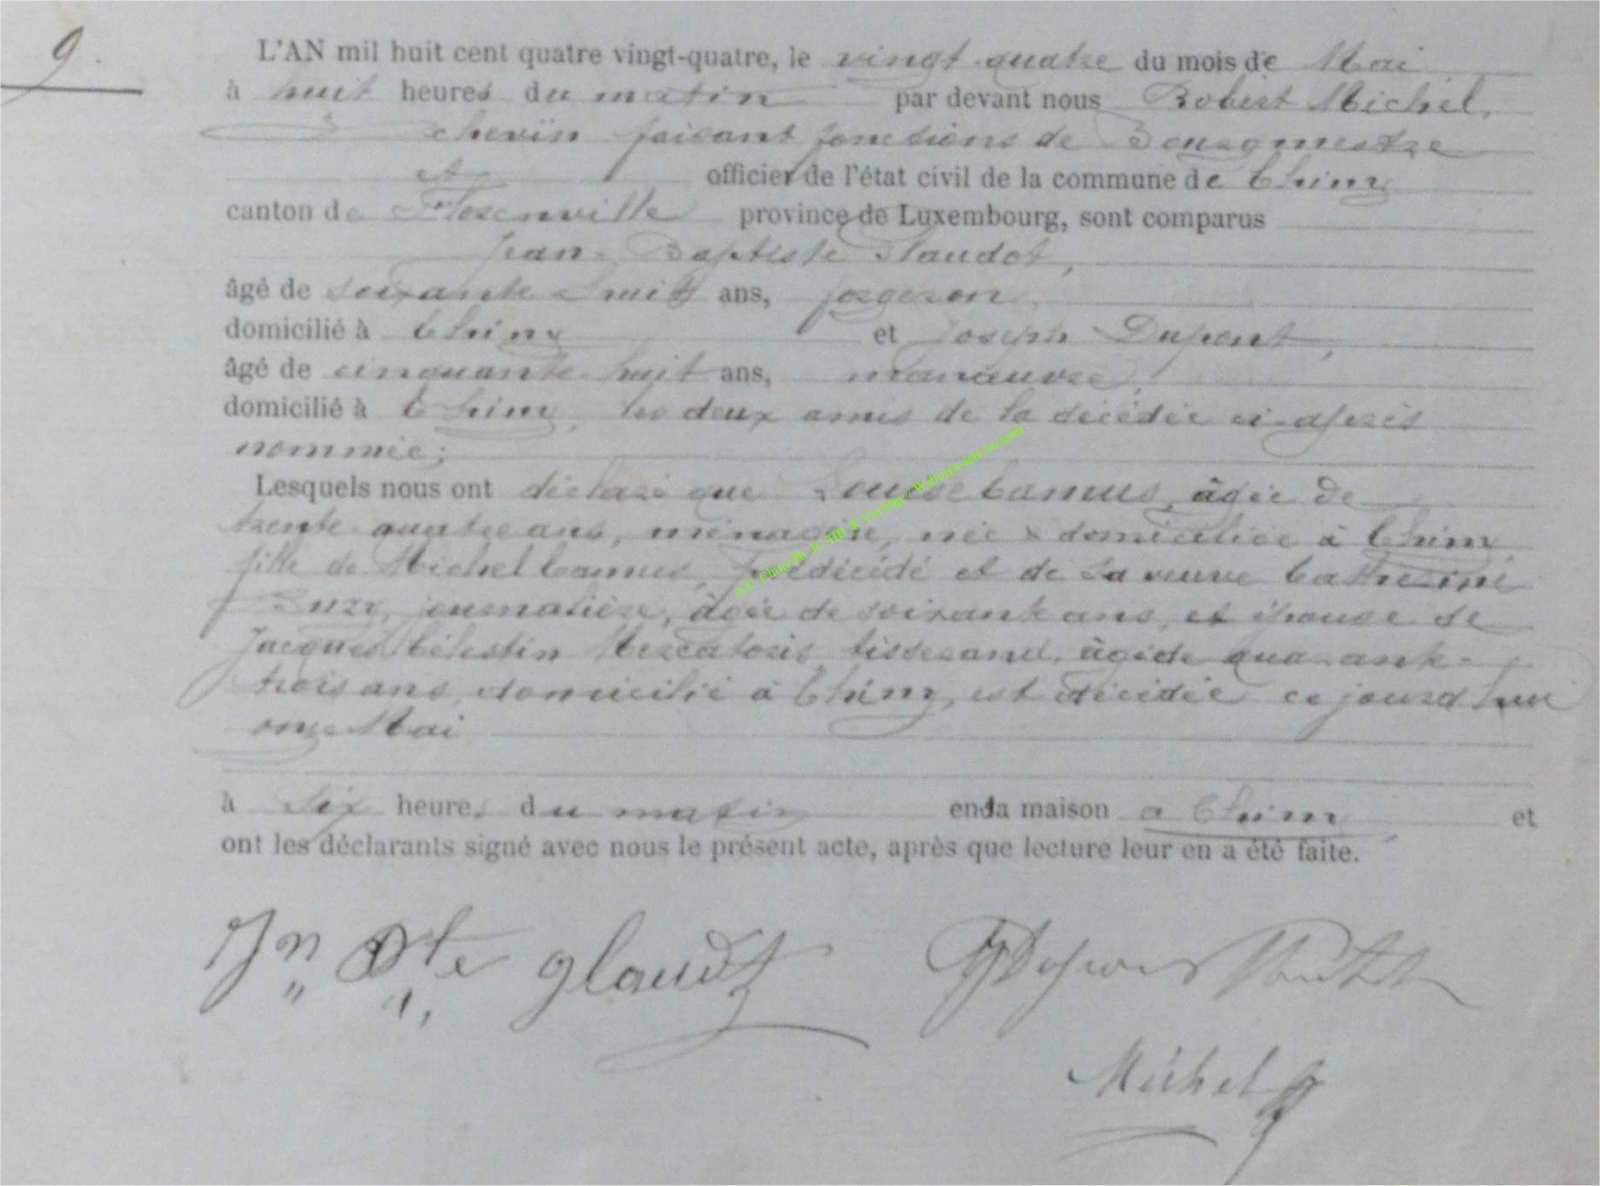 9.
L'AN mil huit cent quatre vingt-quatre, le vingt-quatre du mois de Mai
à huit heures du matin par devant nous Robert Michel,
Echevin faisant fonctions de Bourgmestre
officier de l'état civil de la commune de Chiny
canton de Florenville province de Luxembourg, sont comparus
Jean-Baptiste Glaudot,
âgé de soixante huit ans, forgeron,
domicilié à Chiny et Joseph Dupont,
âgé de cinquante huit ans, manœuvre,
domicilié à Chiny, les deux amis de la décédée ci-après
nommée;
Lesquels nous ont déclaré que Louise Camus, âgée de
trente quatre ans, ménagère, née & domiciliée à Chiny,
fille de Michel Camus, prédécédé et de sa veuve Catherine
journalière, âgée de soixante ans, et épouse de
Jacques Célestin Mercatoris, tisserand, âgé de quarante-
trois ans, domicilié à Chiny, est décédée ce jourd'hui
Mai
à six heures du matin en sa maison à Chiny, et
ont les déclarants signé avec nous le présent acte, après que lecture leur en a été faite.
Jn Bte glaudot
Michel R